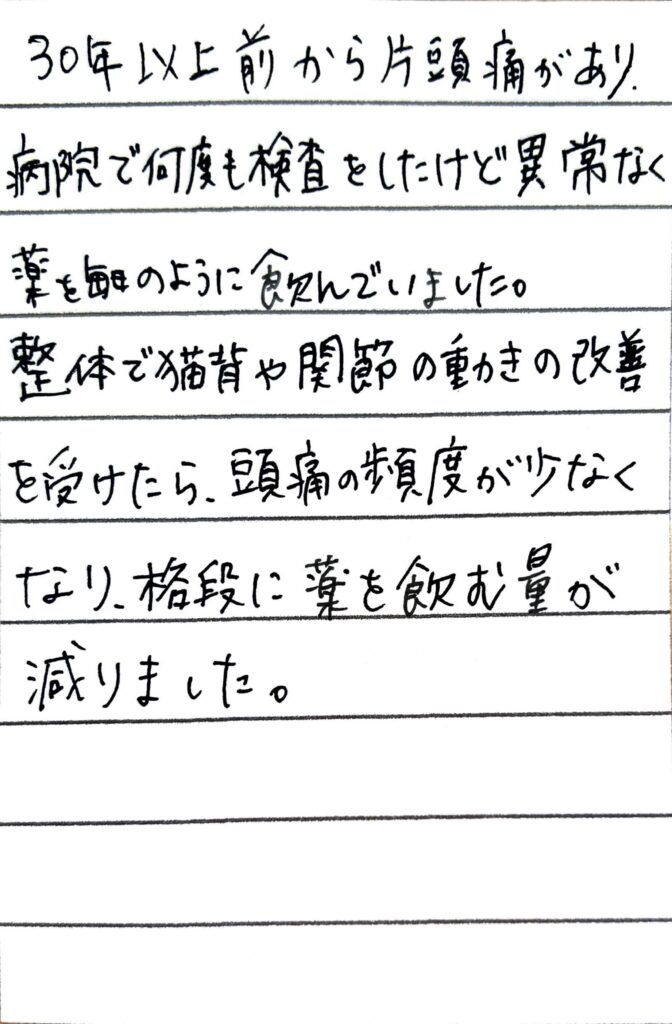 30年以上前から片頭痛があり、
病院で何度も検査をしたけど異常なく
薬を毎日のように飲んでいました。
整体で猫背や関節の動きの改善
を受けたら、頭痛の頻度が少なく
なり、格段に薬を飲む量が
減りました。